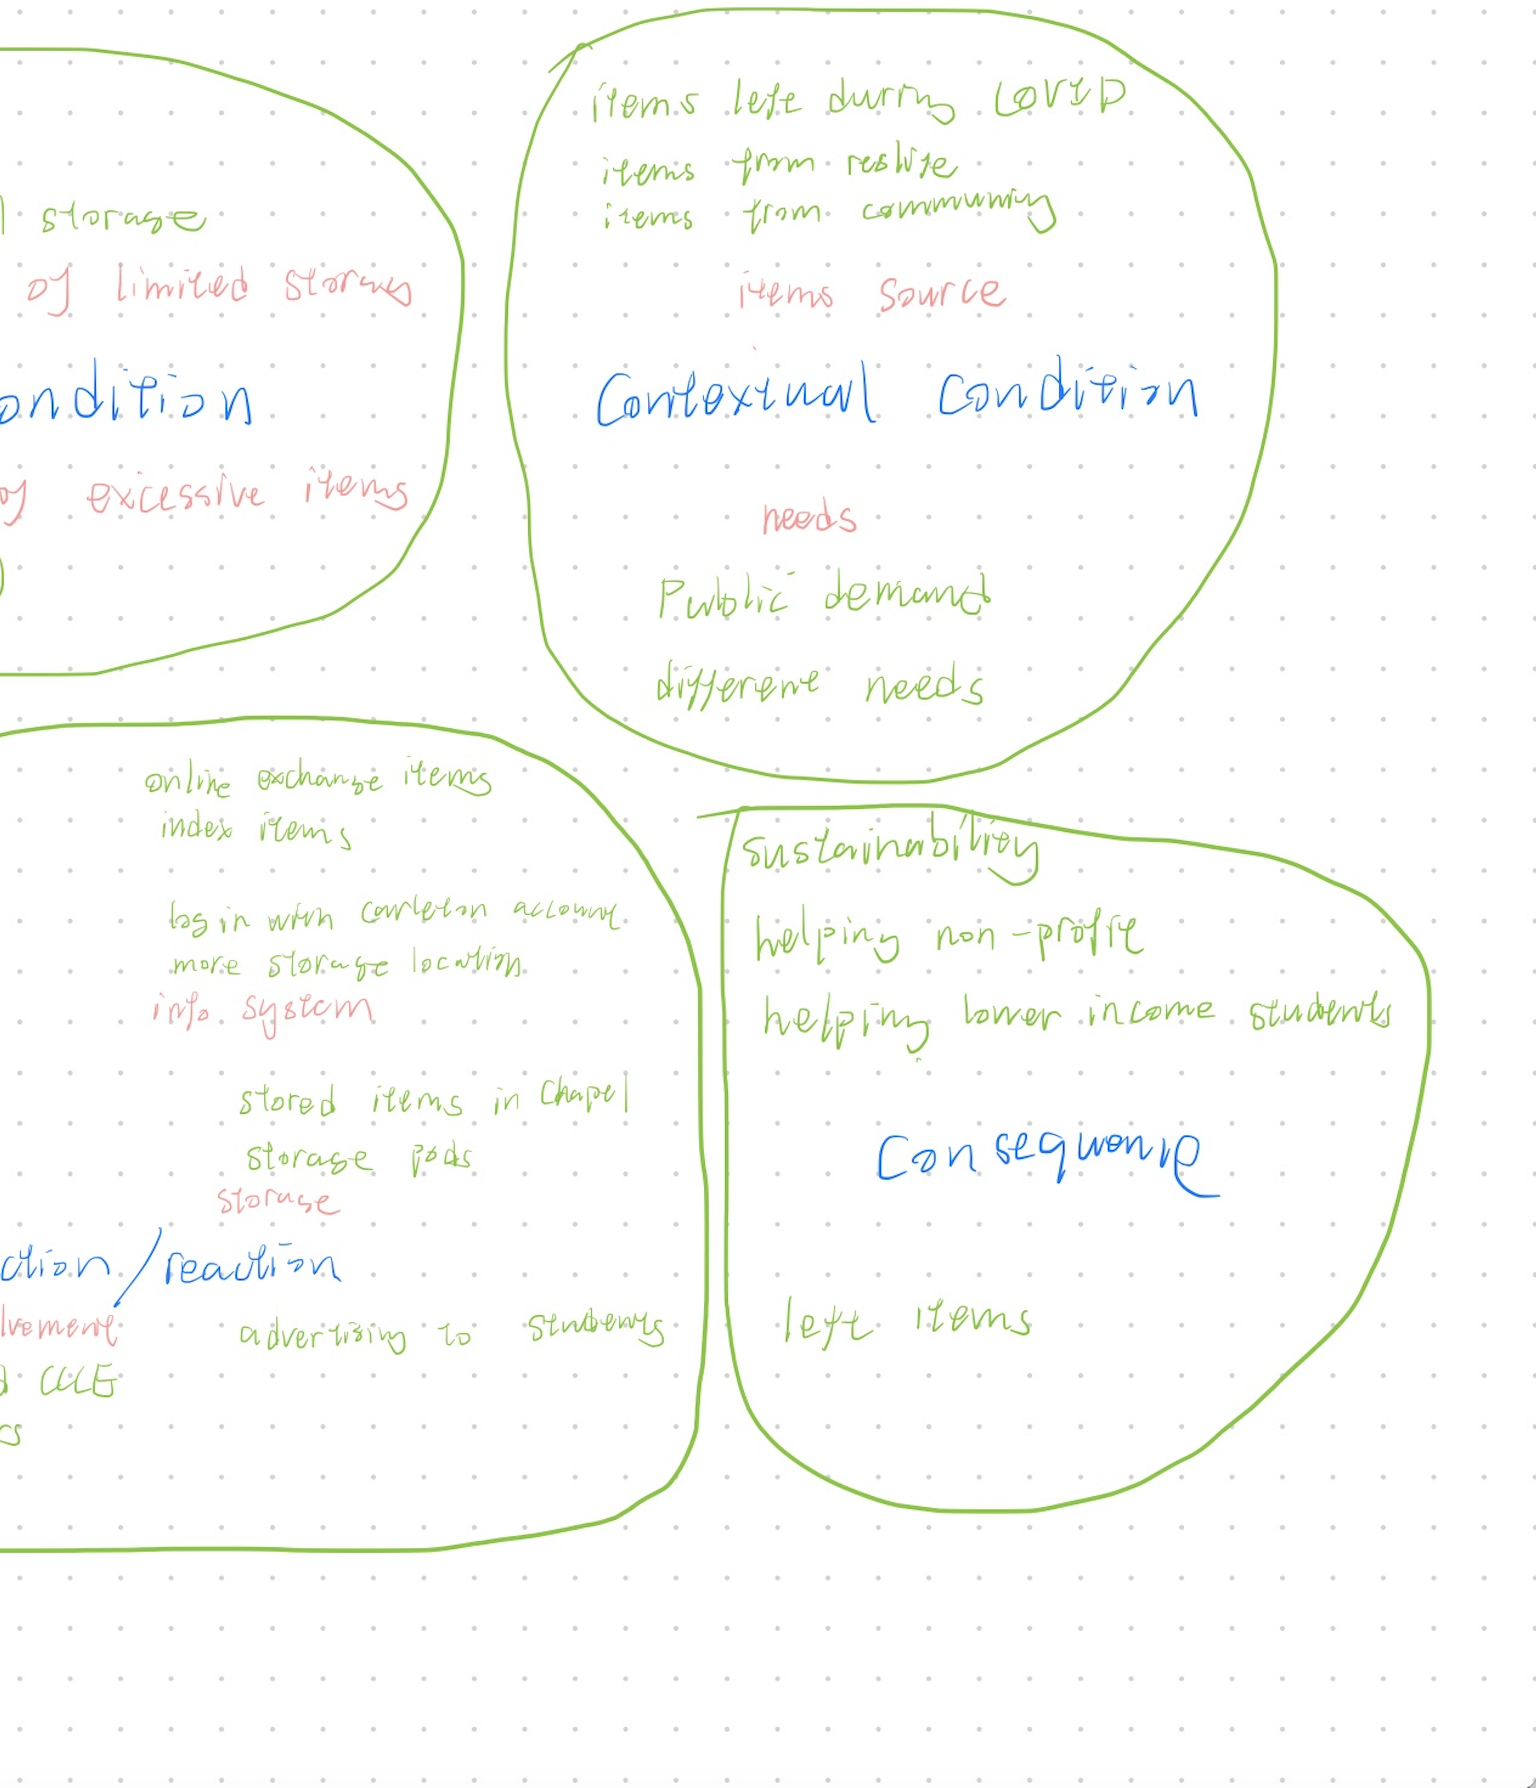 storage
of limited storag
ondition
of excessive items
items left during COVID
items from reslife
items from community
items source
Contextual Condition
needs
Public demand
different needs
online exchange items
index items
log in with carleton account
more storage location
info system
stored items in Chapel
storage pods
storage
ction/reaction
lvement
advertising to students
CCCE
cs
sustainability
helping non-profit
helping lower income students
Consequence
left items